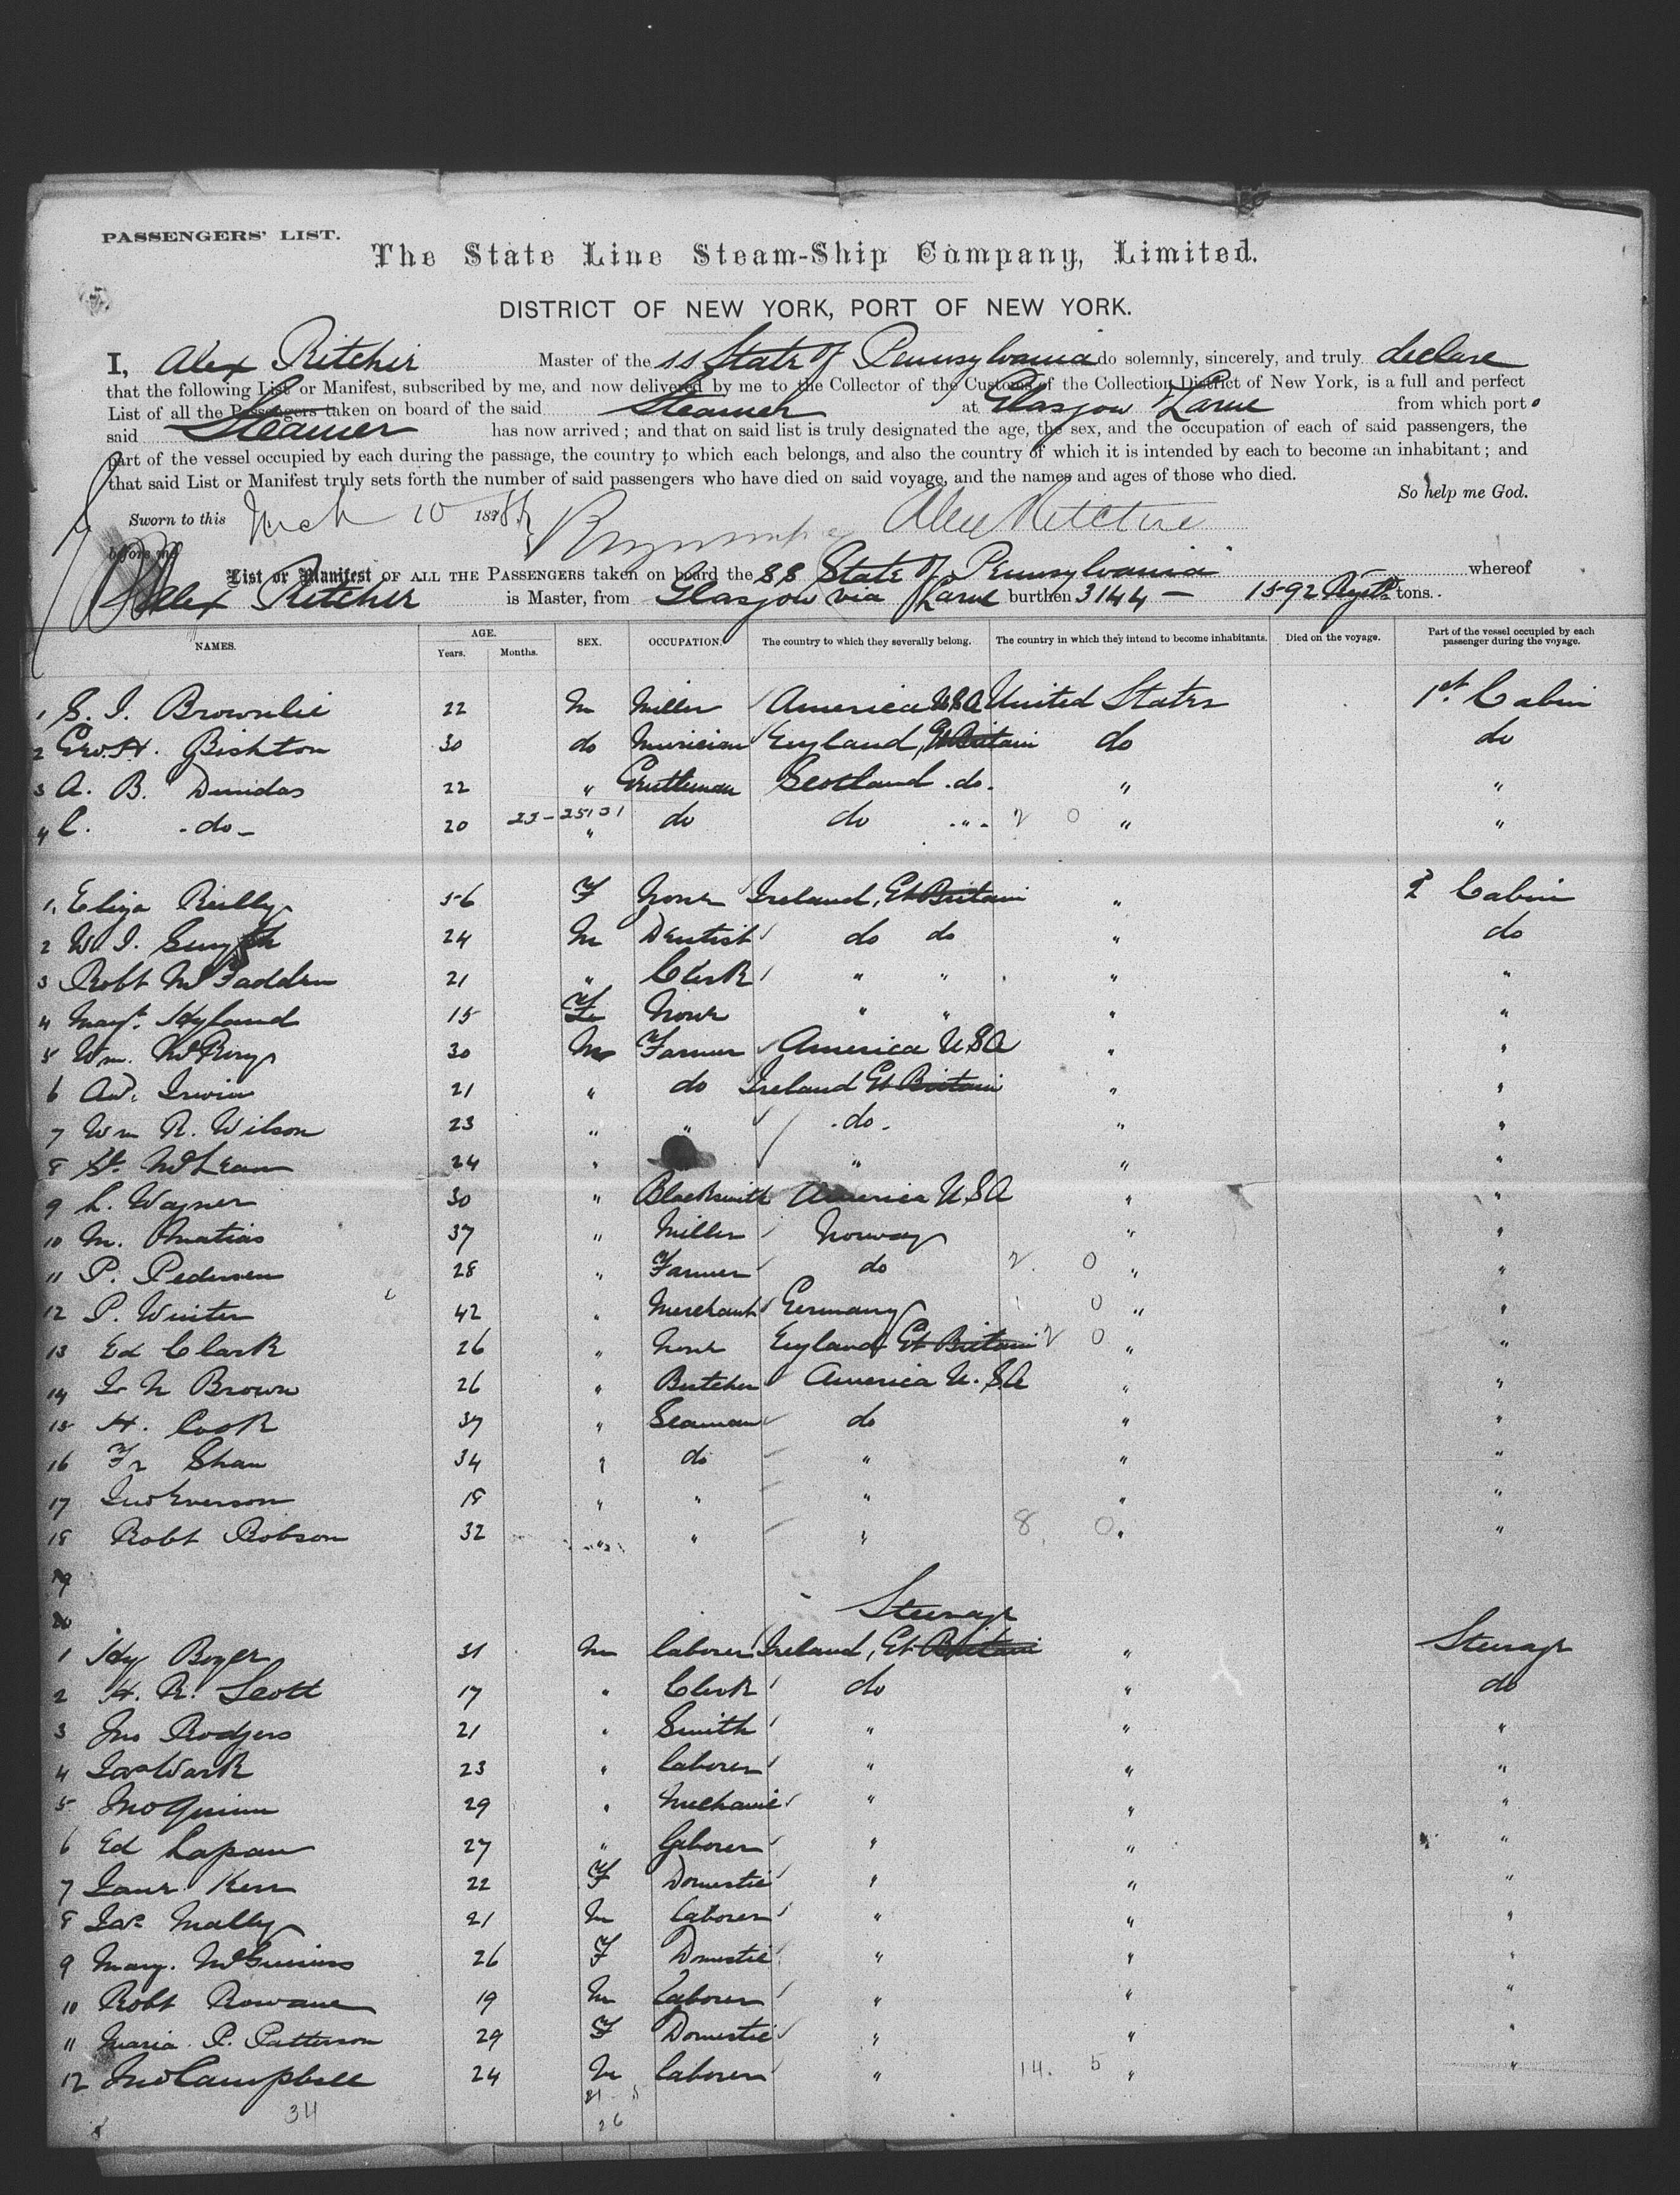 PASSENGERS' LIST.
The State Line Steam-Ship Company, Limited.
DISTRICT OF NEW YORK, PORT OF NEW YORK.
I, Alex Ritchie Master of the SS State of Pennsylvania do solemnly, sincerely, and truly declare
that the following List or Manifest, subscribed by me, and now delivered by me to the Collector of the Customs of the Collection District of New York, is a full and perfect
List of all the Passengers taken on board of the said Steamer at Glasgow & Larne from which port
said Steamer has now arrived; and that on said list is truly designated the age, the sex, and the occupation of each of said passengers, the
part of the vessel occupied by each during the passage, the country to which each belongs, and also the country of which it is intended by each to become an inhabitant; and
that said List or Manifest truly sets forth the number of said passengers who have died on said voyage, and the names and ages of those who died.
So help me God.
Sworn to this Mch 10 188 Alex Ritchie
before me
List or Manifest OF ALL THE PASSENGERS taken on board the SS State of Pennsylvania whereof
Alex Ritchie is Master, from Glasgow via Larne burthen 3144 — 1592 tons.
NAMES. AGE. Years. Months. SEX. OCCUPATION. The country to which they severally belong. The country in which they intend to become inhabitants. Died on the voyage. Part of the vessel occupied by each passenger during the voyage.
1 S. J. Brownlie 22 M Miller America USA United States 1st Cabin
2 Geo. H. Bishton 30 do Musician England, Gt Britain do do
3 A. B. Dundas 22 " Gentleman Scotland do " "
4 C. do 20 " do do " " "
1 Eliza Reilly 56 F None Ireland, Gt Britain " 2 Cabin
2 W. J. Smyth 24 M Dentist do do " do
3 Robt McFadden 21 " Clerk " " " "
4 Margt Hyland 15 F None " " " "
5 Wm. 30 M Farmer America USA " "
6 Irwin 21 " do Ireland Gt Britain " "
7 Wm R. Wilson 23 " " do " "
8 McLean 24 " " " "
9 L. Wagner 30 " Blacksmith America USA " "
10 M. Matias 37 " Miller Norway " "
11 P. Pedersen 28 " Farmer do 2 0 " "
12 P. Winter 42 " Merchant Germany 1 0 " "
13 Ed Clark 26 " None England Gt Britain 2 0 " "
14 Brown 26 " Butcher America U.SA " "
15 H. Cook 37 " Seaman do " "
16 Fr Shaw 34 " do " " "
17 Jno Everson 18 " " " " "
18 Robt Robson 32 " " " 8 0 " "
19
20 Steerage
1 Hy Boyer 31 M laborer Ireland, Gt Britain " Steerage
2 H. R. Scott 17 " Clerk do " do
3 Jno Rodgers 21 " Smith " " "
4 Jas Wark 23 " laborer " " "
5 Jno Quinn 29 " Mechanic " " "
6 Ed Lapan 27 " laborer " " "
7 Jane Kerr 22 F Domestic " " "
8 Jas Mally 21 M laborer " " "
9 Mary McGuiness 26 F Domestic " " "
10 Robt Rowane 19 M laborer " " "
11 Maria P. Patterson 29 F Domestic " " "
12 Jno Campbell 24 M laborer " 14. 5 " "
34 21 5
26